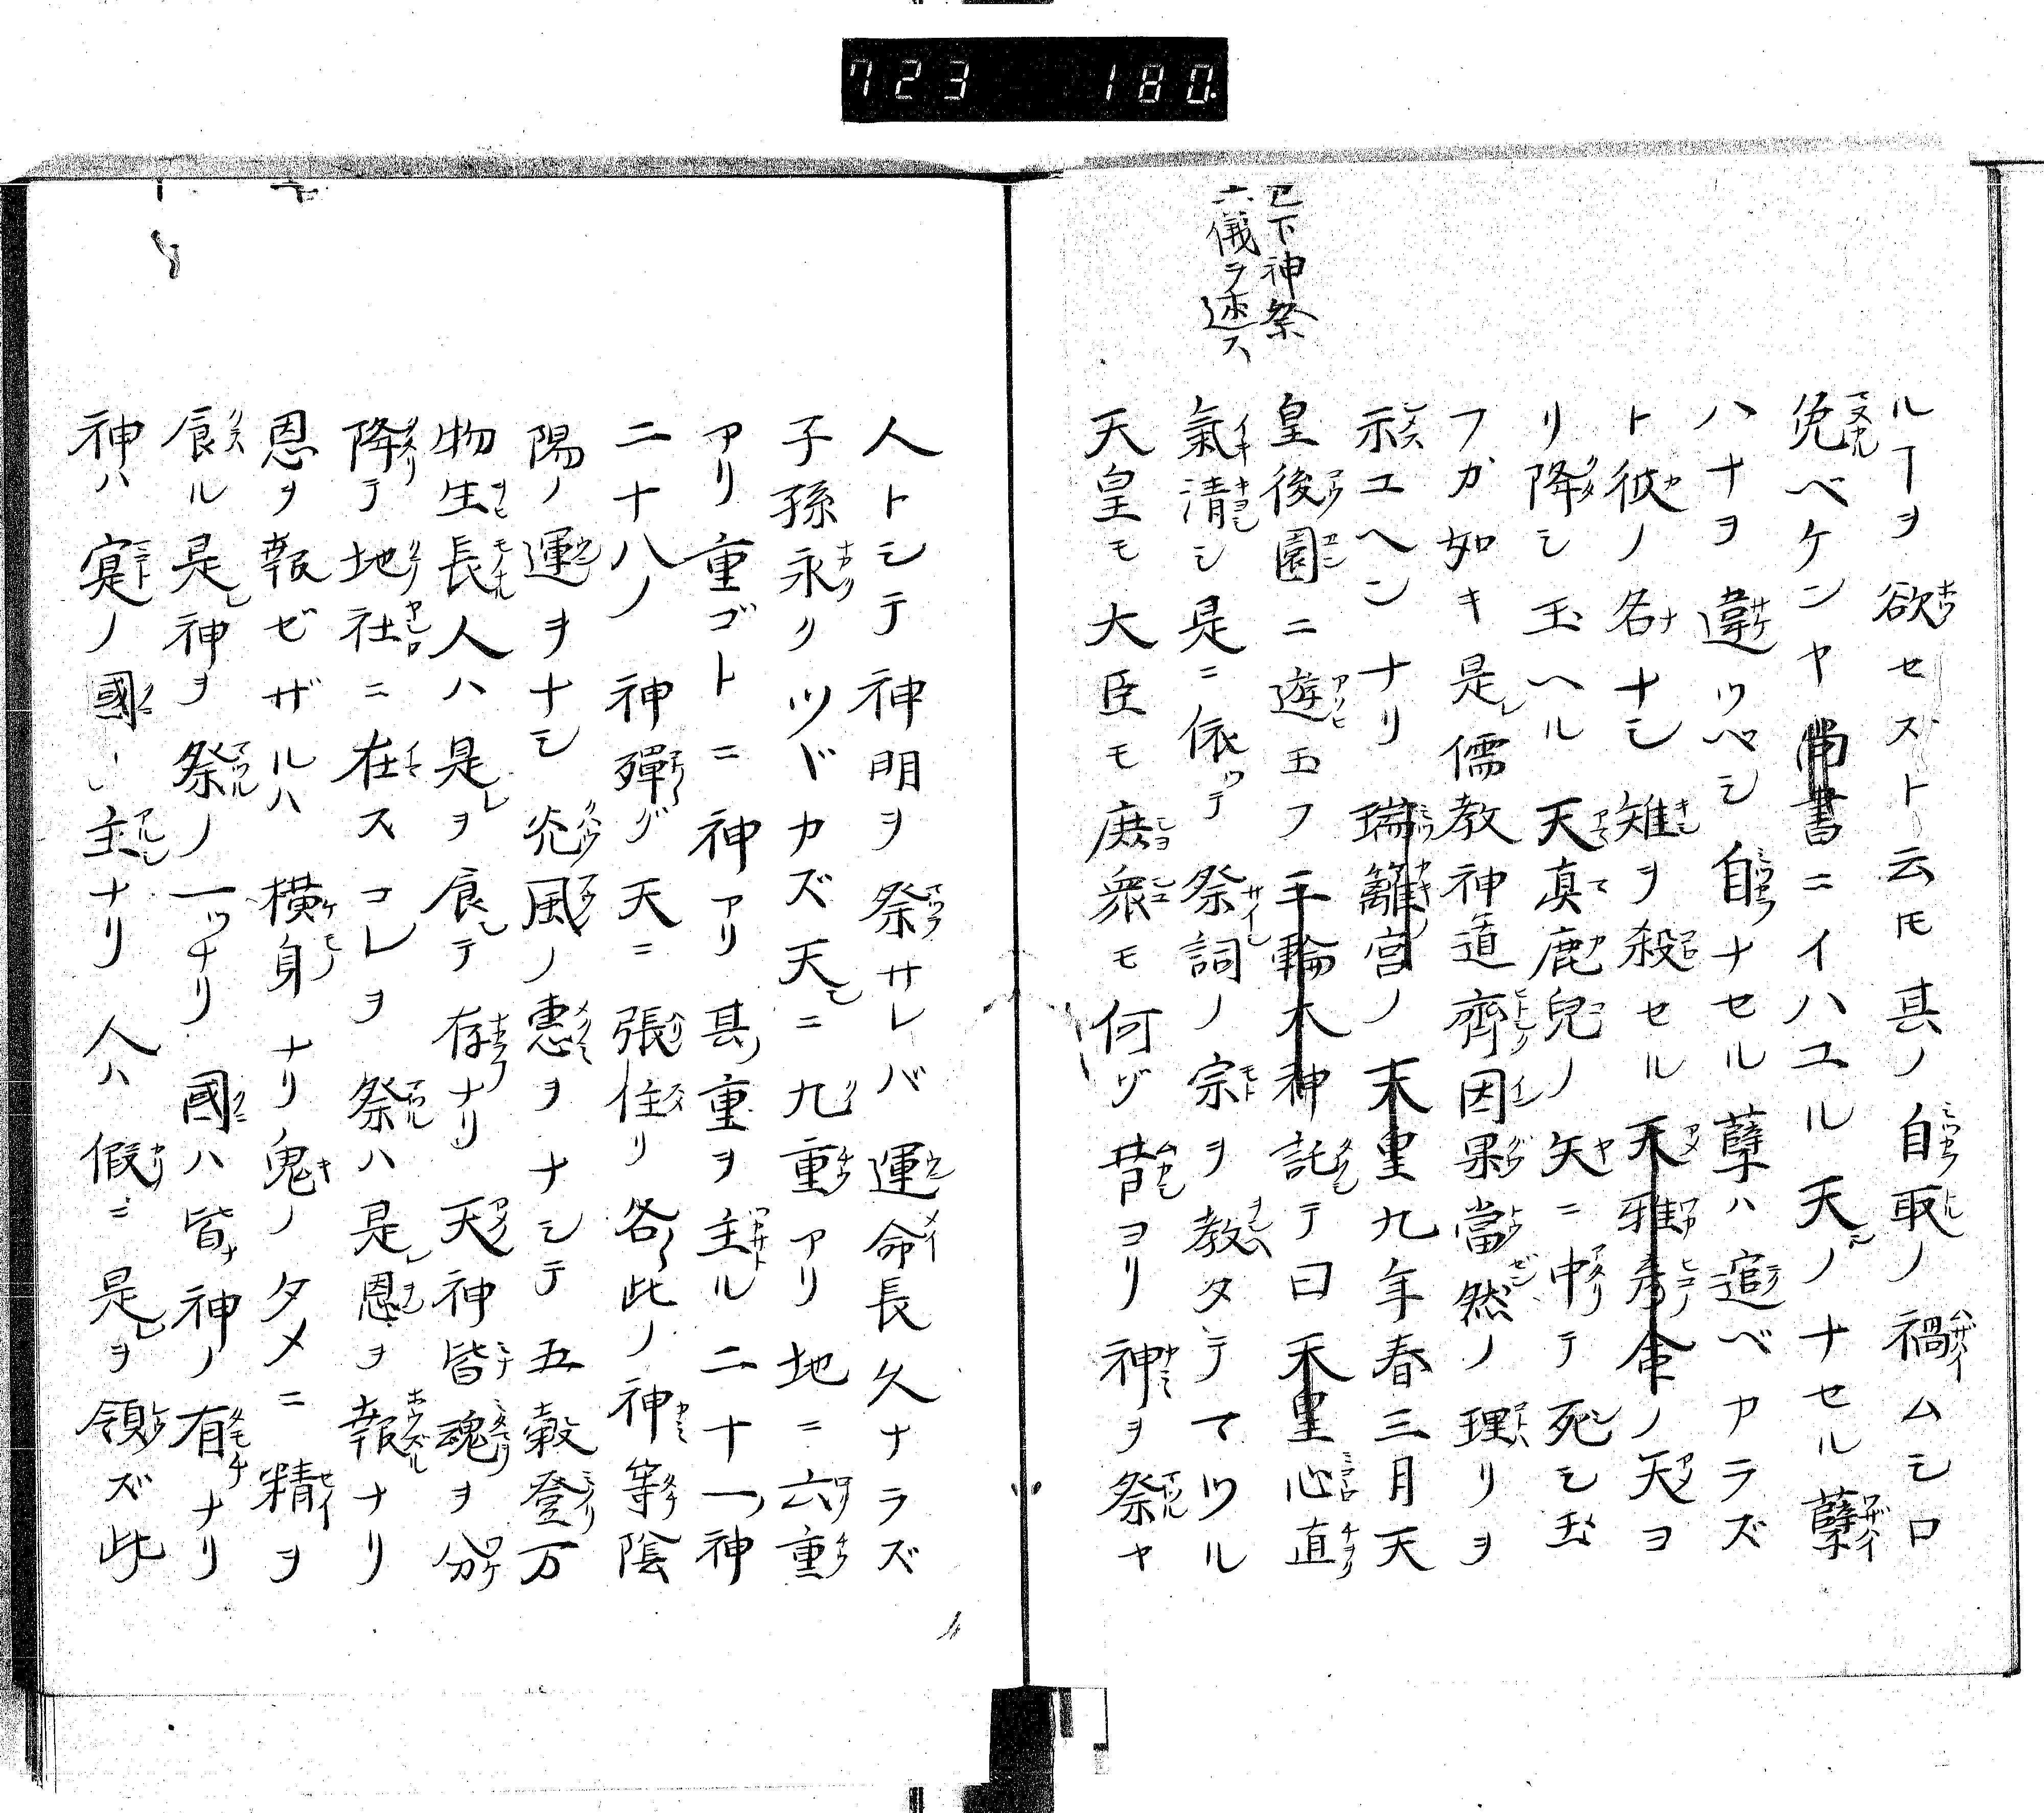 723 180
已下神祭
ノ儀ヲ述ス
ルヿヲ欲セスト云モ其ノ自取ノ禍ムシロ
免ベケンヤ尚書ニイハユル天ノナセル孽
ハナヲ違ツベシ自ナセル孽ハ逭ベアラズ
ト彼ノ名ナシ雉ヲ殺セル天雅彦命ノ天ヨ
リ降シ玉ヘル天真鹿兒ノ矢ニ中テ死シ玉
フガ如キ是儒教神道齊因果當然ノ理リヲ
示ユヘンナリ瑞籬宮ノ天皇九年春三月天
皇後園ニ遊玉フ三輪大神託テ曰天皇心直
氣清シ是ニ依テ祭詞ノ宗ヲ教タテマツル
天皇モ大臣モ庶衆モ何ゾ昔ヨリ神ヲ祭ヤ
人トシテ神明ヲ祭サレバ運命長久ナラズ
子孫永クツドカズ天ニ九重アリ地ニ六重
アリ重ゴトニ神アリ其重ヲ主ル二十一神
二十八ノ神彈グ天ニ張住リ各此ノ神等陰
陽ノ運ヲナシ光風ノ惠ヲナシテ五穀登万
物生長人ハ是ヲ食テ存ナリ天神皆魂ヲ分
降テ地社ニ在スコレヲ祭ハ是恩ヲ報ナリ
恩ヲ報ゼザルハ横身ナリ鬼ノタメニ精ヲ
食ル是神ヲ祭ノ一ツナリ國ハ皆神ノ有ナリ
神ハ寔ノ國ノ主ナリ人ハ假ニ是ヲ領ズ此